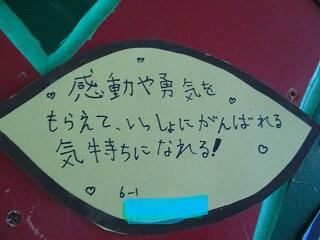 感動や勇気を
もらえて、いっしょにがんばれる
気持ちになれる!
6-1